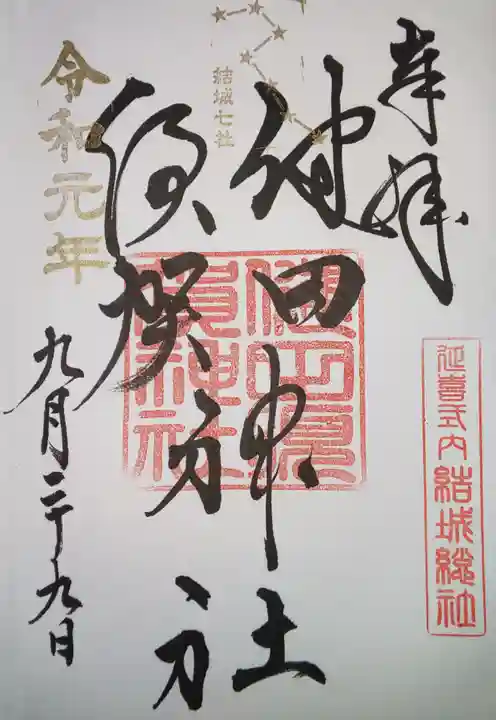 奉拝
延喜式内 結城総社
結城七社
健田神社
須賀神社
健田須
賀神社
令和元年
九月二十九日